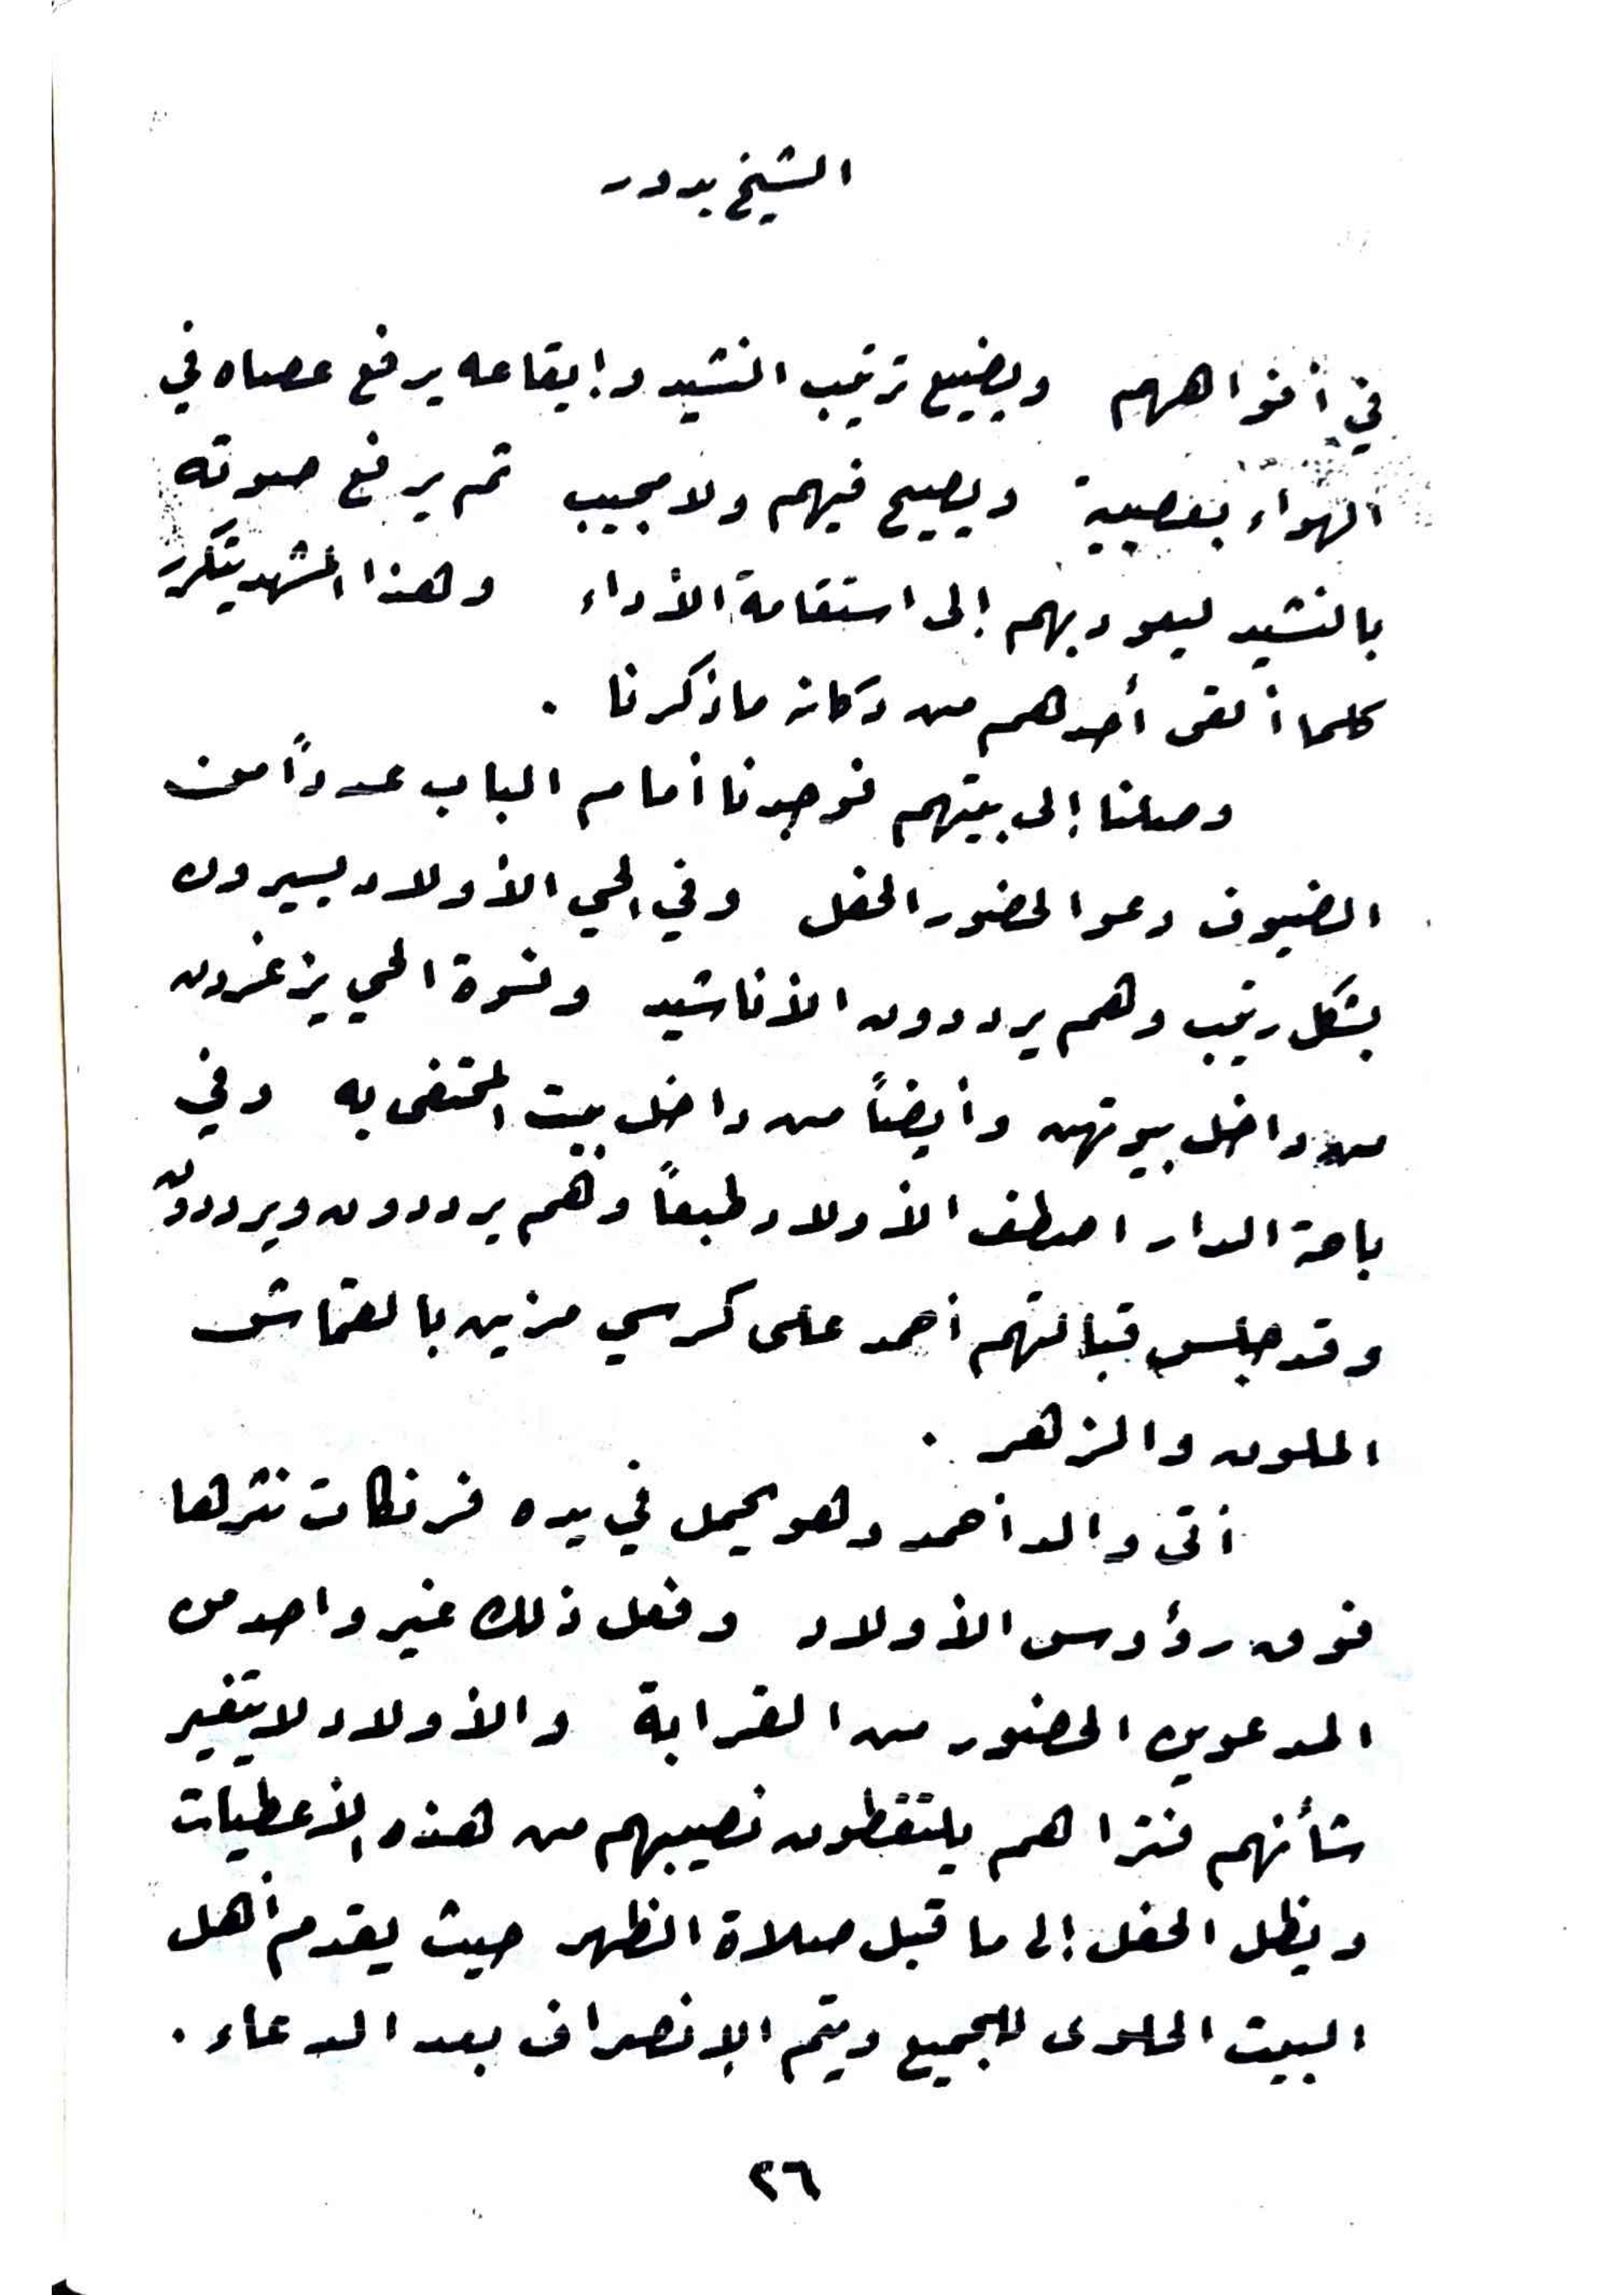 الشيخ بدور
في أفواههم ويضيع ترتيب النشيد وإيقاعه يرفع عصاه في
الهواء بعصبية ويصيح فيهم ولا مجيب ثم يرفع صوته
بالنشيد ليعود بهم إلى استقامة الأداء وهذا المشهد يتكرر
كلما ألقى أحدهم من دكانه ما ذكرنا .
وصلنا إلى بيتهم فوجدنا أمام الباب عدداً من
الضيوف دعوا لحضور الحفل وفي الحي الأولاد يسيرون
بشكل رتيب وهم يرددون الأناشيد ونسوة الحي يزغردن
من داخل بيوتهن وأيضاً من داخل بيت المحتفى به وفي
باحة الدار اصطف الأولاد طبعاً وهم يرددون ويرددون
وقد جلس قبالتهم أحمد على كرسي مزين بالقماش
الملون والزهر .
أتى والد أحمد وهو يحمل في يده فرنكات نثرها
فوق رؤوس الأولاد وفعل ذلك غير واحد من
المدعوين الحضور من القرابة والأولاد لا يتغير
شأنهم فتراهم يلتقطون نصيبهم من هذه الأعطيات
ويظل الحفل إلى ما قبل صلاة الظهر حيث يقدم أهل
البيت الحلوى للجميع ويتم الإنصراف بعد الدعاء .
٢٦